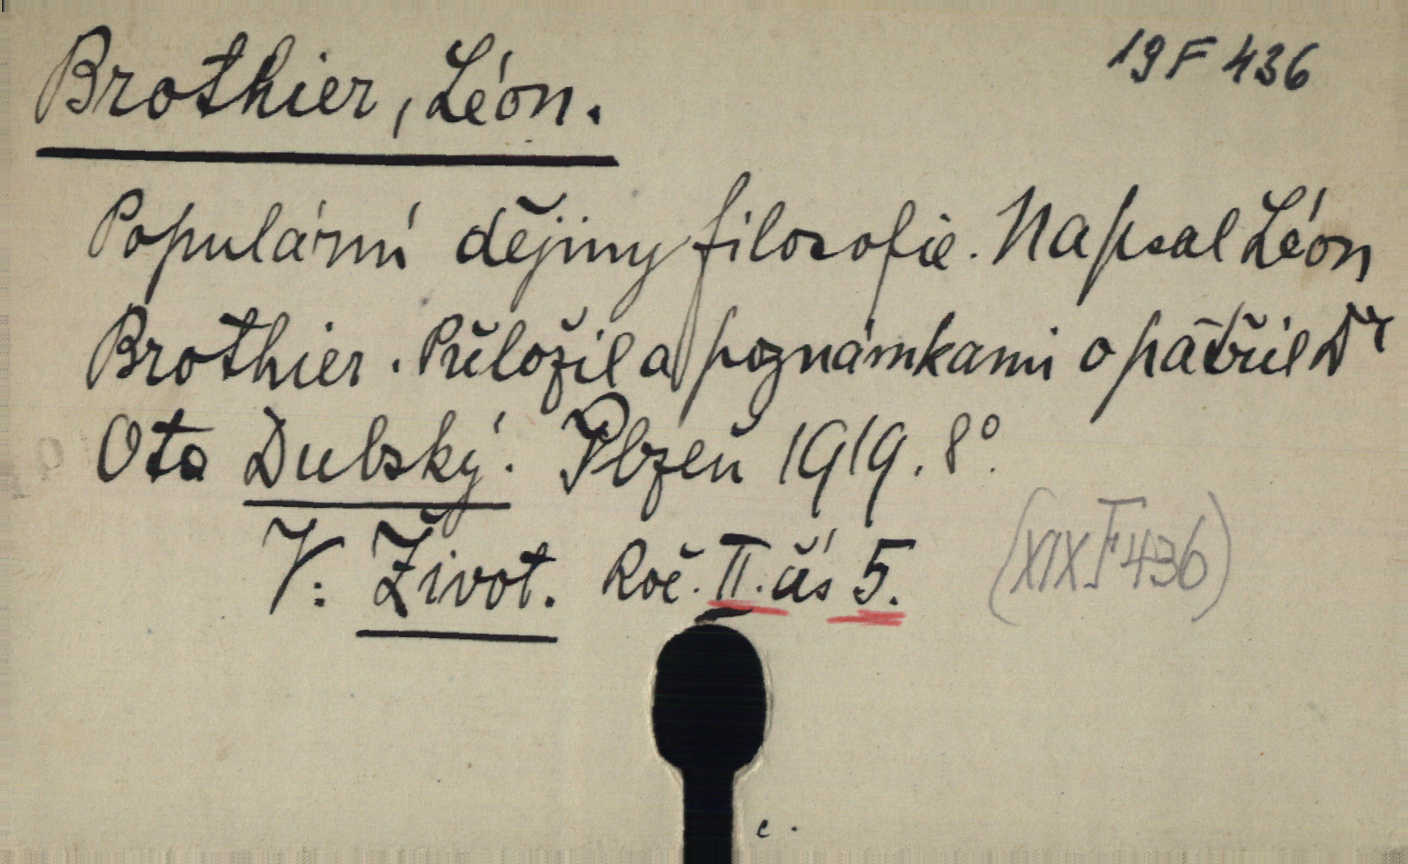 19 F 436
Brothier, Léon.
Populární dějiny filosofie. Napsal Léon
Brothier. Přeložil a poznámkami opatřil Dr
Ota Dubský. Plzeň 1919. 8°.
V: Život. Roč. II. čís 5. (XIX F 436)
c.